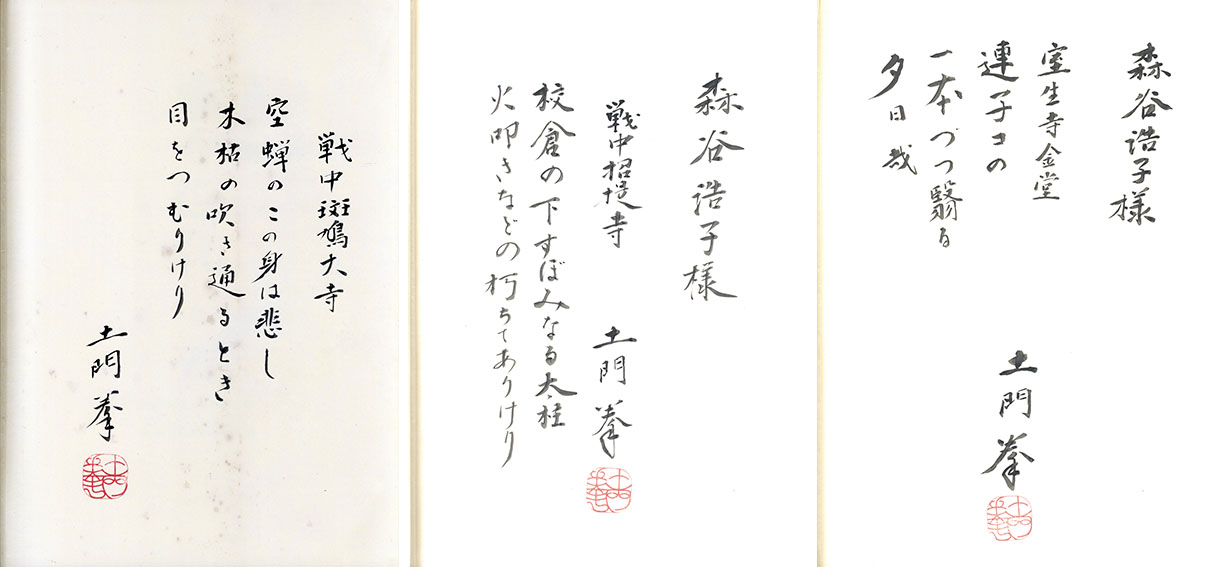 戦中斑鳩大寺
空蝉のこの身は悲し
木枯の吹き通るとき
目をつむりけり
土門拳
森谷浩子様
戦中招提寺
校倉の下すぼみなる太柱
火叩きなどの朽ちてありけり
土門拳
森谷浩子様
室生寺金堂
連子の
一本づつ翳る
夕日哉
土門拳